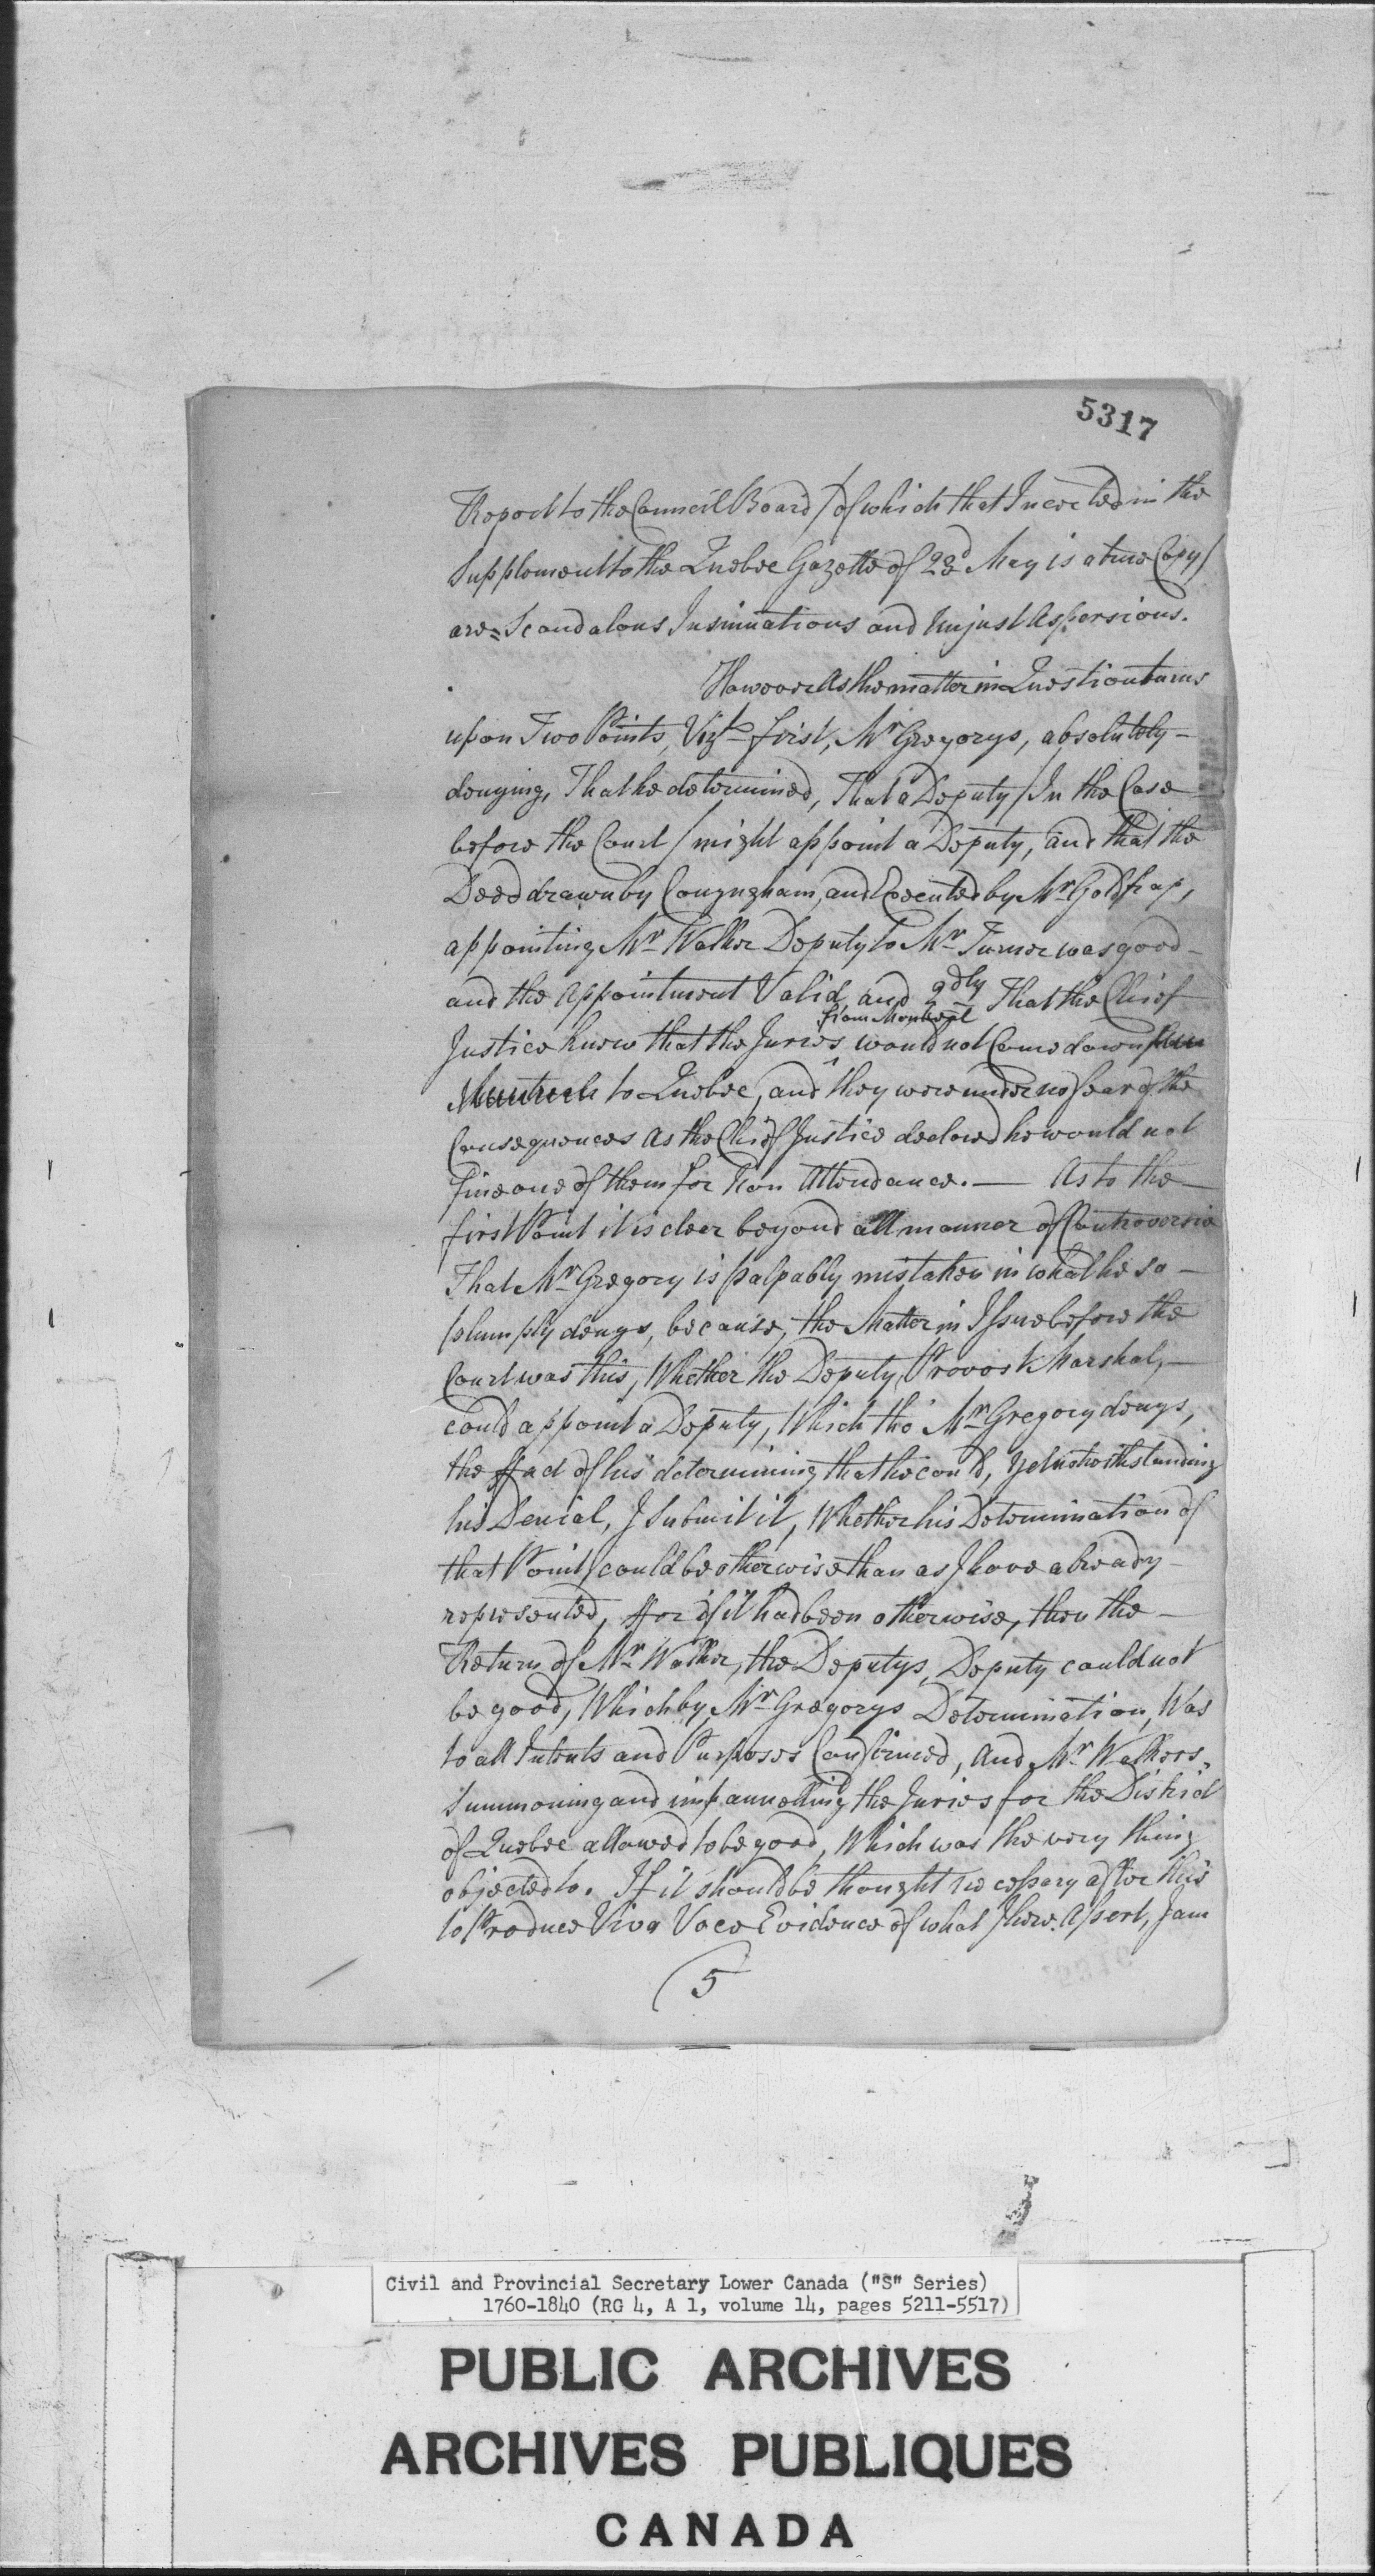 5317
Report to the Council Board / of which that Inserted in the
Supplement to the Quebec Gazette of 23d May is a true Copy /
are = Scandalous Insinuations and Unjust Aspersions.
However As the matter in Question turns
upon Two Points, Vizt first, Mr Gregorys, absolutely –
denying, That he determined, That a Deputy / In the Case
before the Court / might appoint a Deputy, and that the
Deed drawn by Conyngham, and Executed by Mr Goldfrap,
appointing Mr Walker Deputy to Mr Turner was good –
and the Appointment Valid, and 2dly That the Chief
from Montreal
Justice knew that the Juries ^ would not Come down from
Montreal to Quebec, and they were under no fear of the
Consequences As the Chief Justice declared he would not
fine one of them for Non Attendance. — As to the —
first Point it is clear beyond all manner of Controversie
That Mr Gregory is palpably mistaken in what he so –
plumply denys, because, the Matter in Issue before the
Court was this, Whether the Deputy Provost Marshal, –
could appoint a Deputy, Which tho' Mr Gregory denys,
the ffact of his determining that he could, yet notwithstanding
his Denial, I Submit it, Whether his Determination of
that Point, could be otherwise than as I have already –
represented, ffor if it had been otherwise, then the –
Return of Mr Walker, the Deputys, Deputy could not
be good, Which by Mr Gregorys Determination, Was
to all Intents and Purposes Confirmed, And Mr Walkers
Summoning and impannelling the Juries for the District
of Quebec allowed to be good, Which was the very thing
objected to. If it should be thought necessary after this
to Produce Viva Voce Evidence of what I here Assert, I am
5
Civil and Provincial Secretary Lower Canada ("S" Series)
1760-1840 (RG 4, A 1, volume 14, pages 5211-5517)
PUBLIC ARCHIVES
ARCHIVES PUBLIQUES
CANADA